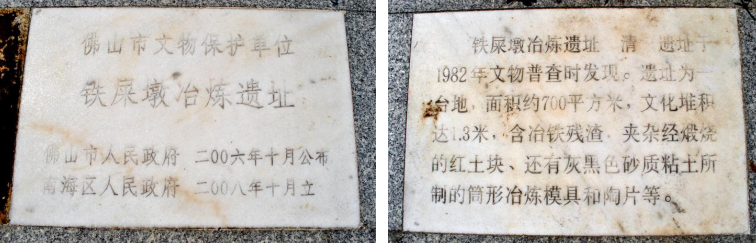 佛山市文物保护单位
铁屎墩冶炼遗址
佛山市人民政府 二〇〇六年十月公布
南海区人民政府 二〇〇八年十月立
铁屎墩冶炼遗址 清 遗址于
1982年文物普查时发现。遗址为一
台地，面积约700平方米，文化堆积
达1.3米，含冶铁残渣，夹杂经煅烧
的红土块、还有灰黑色砂质粘土所
制的筒形冶炼模具和陶片等。